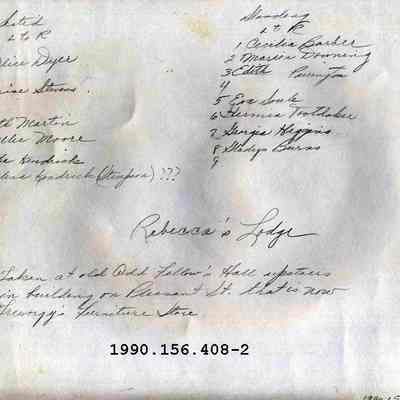 Seated
L to R
Alice Dyer
Stevens
Martin
Moore
Kendrick
Kendrick (Stenfors) ???
Standing
L to R
1 Cecilia Barber
2 Marion Downing
3 Edith Purington
4
5 Eva Soule
6 Hermea Toothaker
7 Georgia Higgins
8 Gladys Burns
9
Rebecca's Lodge
Taken at old Odd Fellow's Hall upstairs
in building on Pleasant St. that is now
Trewogy's furniture Store
1990.156.408-2